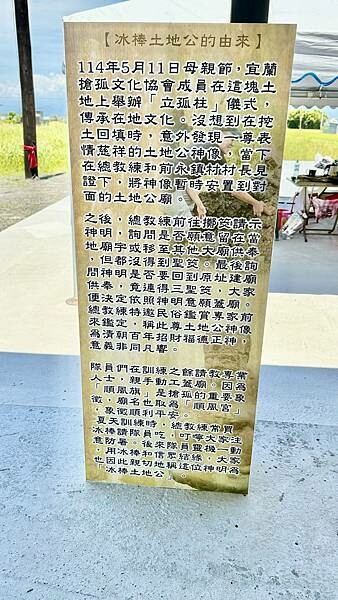 【冰棒土地公的由來】
114年5月11日母親節，宜蘭
搶孤文化協會成員在這塊土
地上舉辦「立孤柱」儀式，
傳承在地文化。沒想到在挖
土回填時，意外發現一尊表
情慈祥的土地公神像，當下
在總教練和前永鎮村村長見
證下，將神像暫時安置到對
面的土地公廟。
之後，總教練前往擲筊請示
神明，詢問是否願意留在當
地廟宇或移至其他大廟供奉
，但都沒得到聖筊。最後詢
問神明是否要回到原址建廟
供奉，竟連得三聖筊，大家
便決定依照神明意願蓋廟。
總教練特邀民俗鑑賞專家前
來鑑定，稱此尊土地公神像
為清朝百年招財福德正神，
意義非同凡響。
隊員們在訓練之餘請教專業
人士，親手動工蓋廟。因為
「順風旗」是搶孤的重要象
徵，廟名也取為「順風宮」
，象徵順利平安。
夏天訓練時，總教練常買
冰棒請隊員吃，叮嚀大家注
意防暑。後來隊員靈機一動
，用冰棒和信眾結緣，大家
也因此親切地稱這位神明為
「冰棒土地公」。